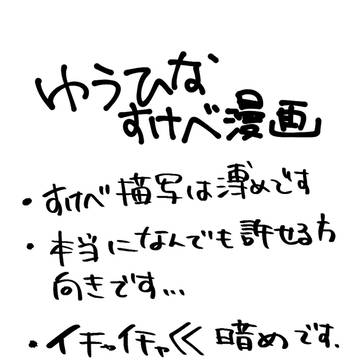 ゆうひな
すけべ漫画
・すけべ描写は薄めです
・本当になんでも許せる方
向きです...
・イチャイチャ<<暗めです.